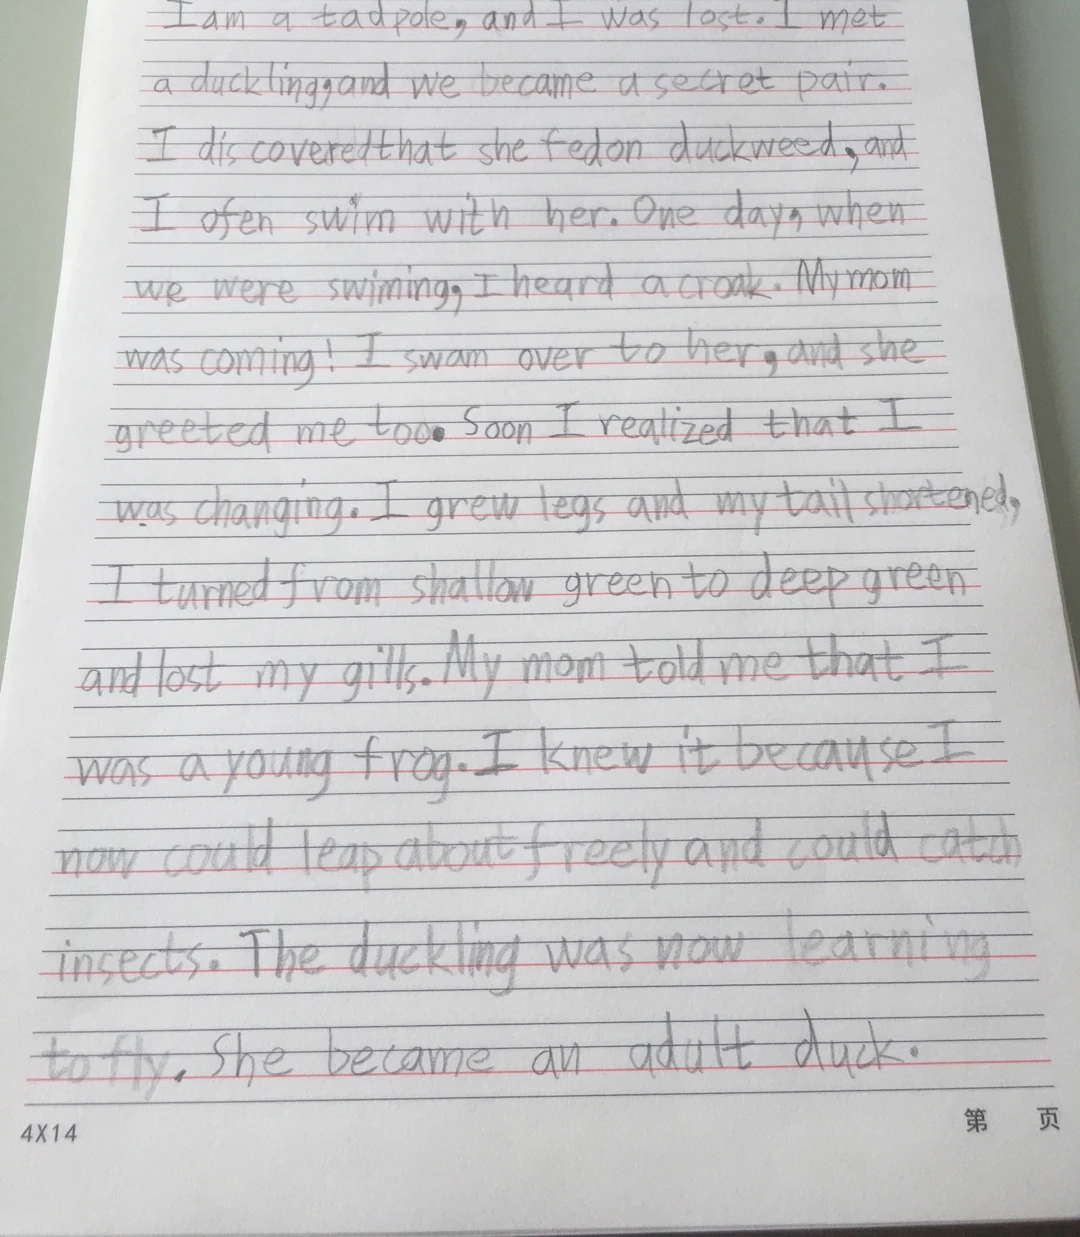 I am a tadpole, and I was lost. I met
a duckling, and we became a secret pair.
I discovered that she fed on duckweed, and
I ofen swim with her. One day, when
we were swiming, I heard a croak. My mom
was coming! I swam over to her, and she
greeted me too. Soon I realized that I
was changing. I grew legs and my tail shortened,
I turned from shallow green to deep green
and lost my gills. My mom told me that I
was a young frog. I knew it because I
now could leap about freely and could catch
insects. The duckling was now learning
to fly. She became an adult duck.
4X14
第 页